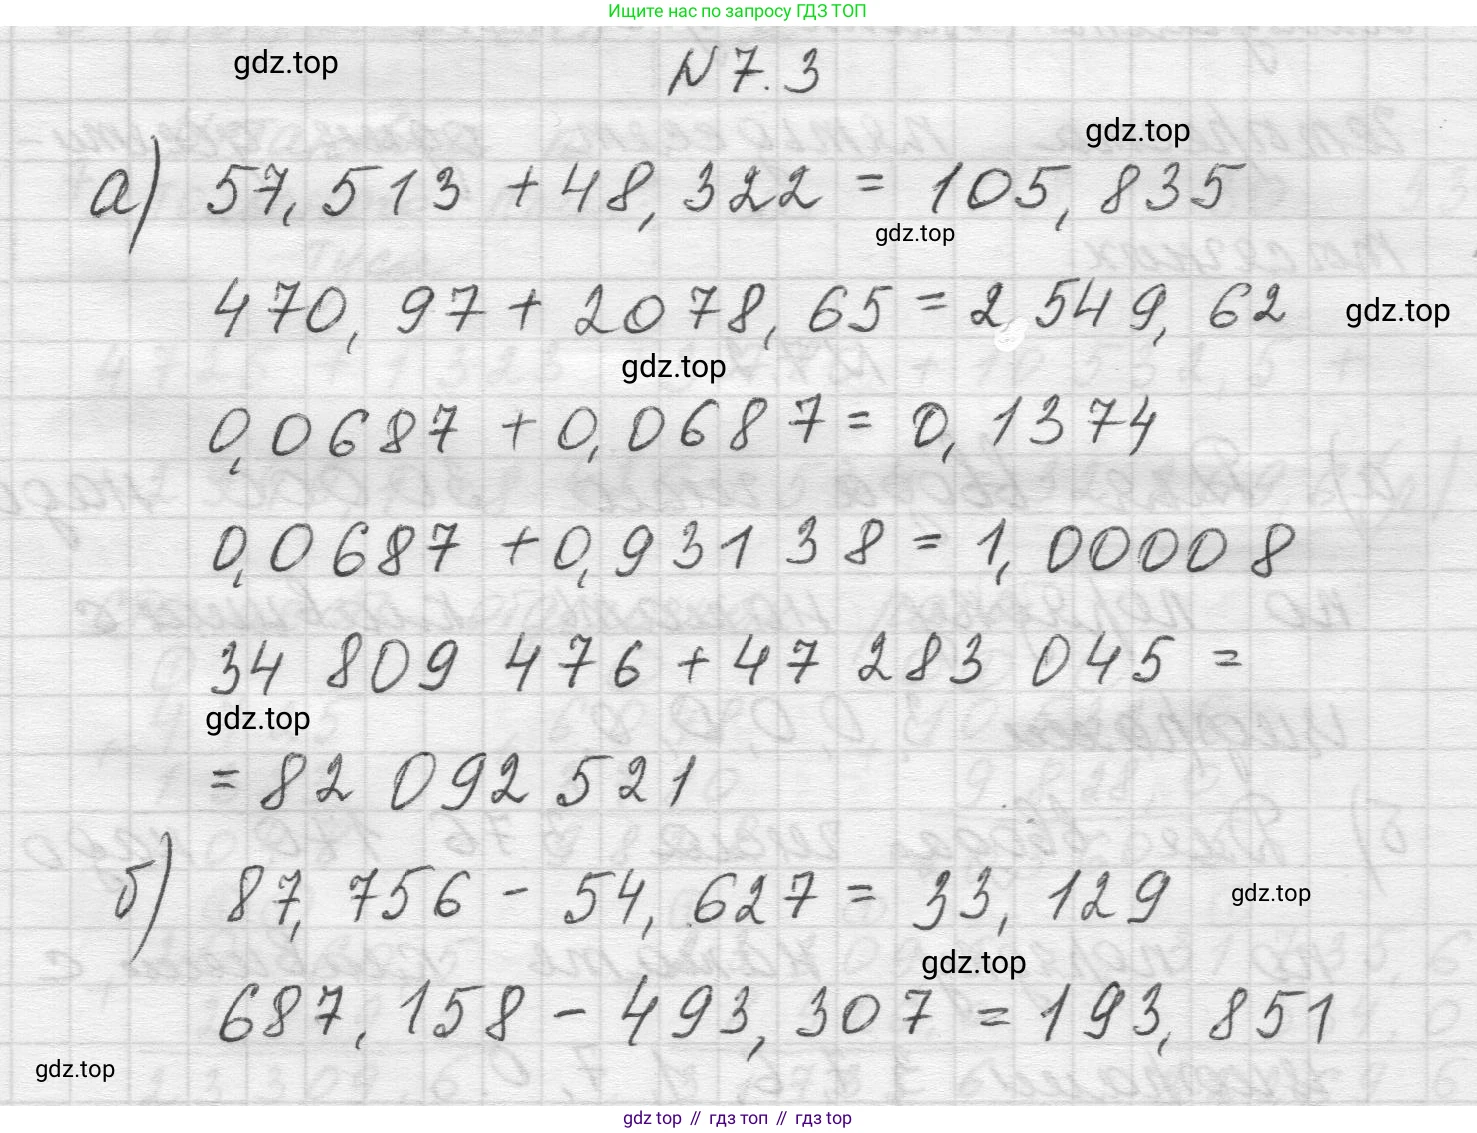 Ищите нас по запросу ГДЗ ТОП
gdz.top
N 7.3
gdz.top
а) 57,513 + 48,322 = 105,835
gdz.top
470,97 + 2078,65 = 2 549,62
gdz.top
gdz.top
0,0687 + 0,0687 = 0,1374
0,0687 + 0,93138 = 1,00008
34 809 476 + 47 283 045 =
gdz.top
= 82 092 521
б) 87,756 - 54,627 = 33,129
gdz.top
gdz.top
687,158 - 493,307 = 193,851
gdz.top
gdz top // гдз топ // гдз top